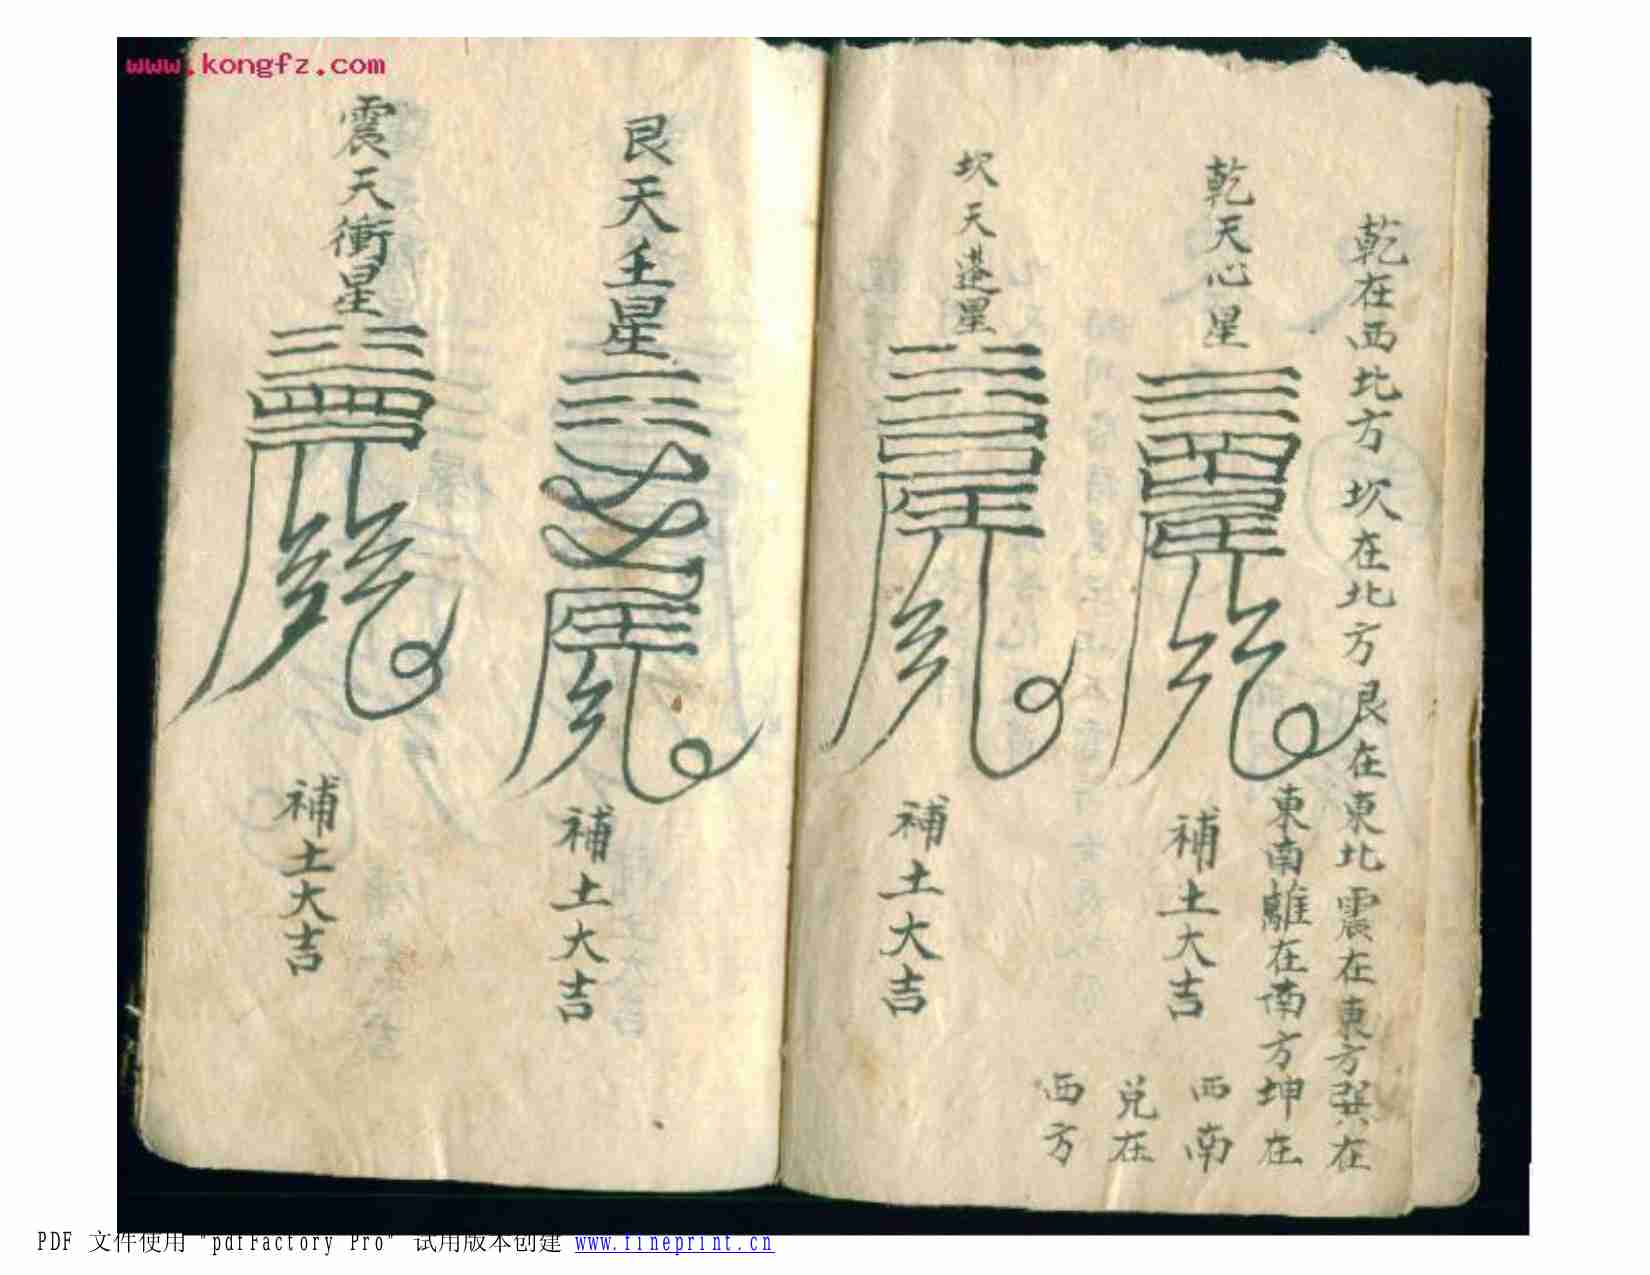 www.kongfz.com
乾在西北方坎在北方艮在東北震在東方巽在
東南離在南方坤在
西南
兌在
西方
乾天心星
補土大吉
坎天蓬星
補土大吉
艮天壬星
補土大吉
震天衝星
補土大吉
PDF 文件使用 "pdfFactory Pro" 试用版本创建 www.fineprint.cn